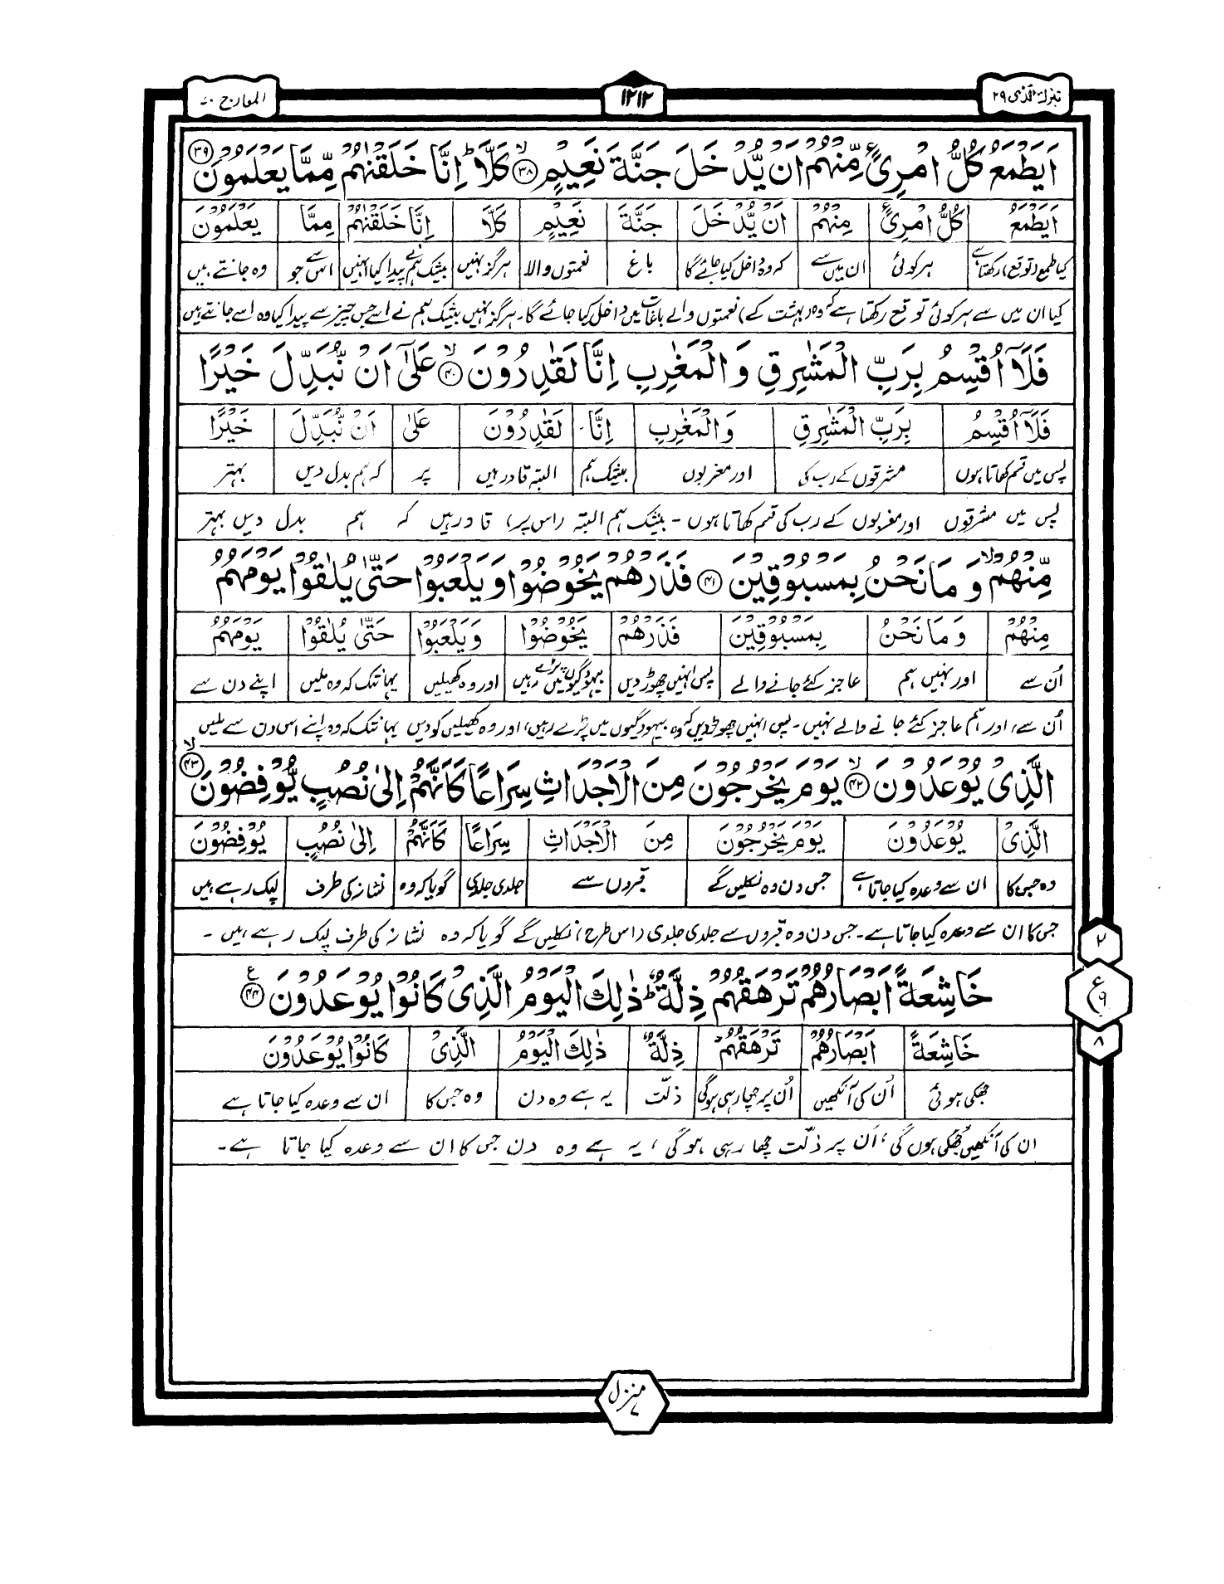 تبٰرك الذی ۲۹
۱۲۱۲
المعارج ۷۰
اَيَطْمَعُ كُلُّ امْرِئٍ مِّنْهُمْ اَنْ يُّدْخَلَ جَنَّةَ نَعِيْمٍ ۳۸ كَلَّا ؕ اِنَّا خَلَقْنٰهُمْ مِّمَّا يَعْلَمُوْنَ ۳۹
اَيَطْمَعُ كُلُّ امْرِئٍ مِنْهُمْ اَنْ يُّدْخَلَ جَنَّةَ نَعِيْمٍ كَلَّا اِنَّا خَلَقْنٰهُمْ مِمَّا يَعْلَمُوْنَ
کیا طمع (توقع) رکھتا ہے ہر کوئی ان میں سے کہ وہ داخل کیا جائے گا باغ نعمتوں والا ہرگز نہیں بیشک ہم نے پیدا کیا انہیں اس سے جو وہ جانتے ہیں
کیا ان میں سے ہر کوئی توقع رکھتا ہے کہ وہ (بہشت کے) نعمتوں والے باغات میں داخل کیا جائے گا۔ ہرگز نہیں بیشک ہم نے اسے جس چیز سے پیدا کیا وہ اسے جانتے ہیں
فَلَآ اُقْسِمُ بِرَبِّ الْمَشٰرِقِ وَالْمَغٰرِبِ اِنَّا لَقٰدِرُوْنَ ۴۰ عَلٰٓى اَنْ نُّبَدِّلَ خَيْرًا
فَلَآ اُقْسِمُ بِرَبِّ الْمَشٰرِقِ وَالْمَغٰرِبِ اِنَّا لَقٰدِرُوْنَ عَلٰى اَنْ نُّبَدِّلَ خَيْرًا
پس میں قسم کھاتا ہوں مشرقوں کے رب کی اور مغربوں بیشک ہم البتہ قادر ہیں پر کہ ہم بدل دیں بہتر
پس میں مشرقوں اور مغربوں کے رب کی قسم کھاتا ہوں۔ بیشک ہم البتہ (اس پر) قادر ہیں کہ ہم بدل دیں بہتر
مِّنْهُمْ وَمَا نَحْنُ بِمَسْبُوْقِيْنَ ۴۱ فَذَرْهُمْ يَخُوْضُوْا وَيَلْعَبُوْا حَتّٰى يُلٰقُوْا يَوْمَهُمُ
مِنْهُمْ وَمَا نَحْنُ بِمَسْبُوْقِيْنَ فَذَرْهُمْ يَخُوْضُوْا وَيَلْعَبُوْا حَتّٰى يُلٰقُوْا يَوْمَهُمُ
اُن سے اور نہیں ہم عاجز کئے جانے والے پس انہیں چھوڑ دیں بیہودگیوں میں پڑے رہیں اور وہ کھیلیں یہانتک کہ وہ ملیں اپنے دن سے
اُن سے، اور ہم عاجز کئے جانے والے نہیں۔ پس انہیں چھوڑ دیں کہ وہ بیہودگیوں میں پڑے رہیں، اور وہ کھیلیں کودیں یہانتک کہ وہ اپنے اس دن سے ملیں
الَّذِيْ يُوْعَدُوْنَ ۴۲ يَوْمَ يَخْرُجُوْنَ مِنَ الْاَجْدَاثِ سِرَاعًا كَاَنَّهُمْ اِلٰى نُصُبٍ يُّوْفِضُوْنَ ۴۳
الَّذِيْ يُوْعَدُوْنَ يَوْمَ يَخْرُجُوْنَ مِنَ الْاَجْدَاثِ سِرَاعًا كَاَنَّهُمْ اِلٰى نُصُبٍ يُوْفِضُوْنَ
وہ جس کا ان سے وعدہ کیا جاتا ہے جس دن وہ نکلیں گے قبروں سے جلدی جلدی گویا کہ وہ نشانے کی طرف لپک رہے ہیں
جس کا ان سے وعدہ کیا جاتا ہے۔ جس دن وہ قبروں سے جلدی جلدی (اس طرح) نکلیں گے گویا کہ وہ نشانہ کی طرف لپک رہے ہیں۔
خَاشِعَةً اَبْصَارُهُمْ تَرْهَقُهُمْ ذِلَّةٌ ؕ ذٰلِكَ الْيَوْمُ الَّذِيْ كَانُوْا يُوْعَدُوْنَ ۴۴ ع
خَاشِعَةً اَبْصَارُهُمْ تَرْهَقُهُمْ ذِلَّةٌ ذٰلِكَ الْيَوْمُ الَّذِيْ كَانُوْا يُوْعَدُوْنَ
جھکی ہوئی اُن کی آنکھیں اُن پر چھا رہی ہوگی ذلّت یہ ہے وہ دن وہ جس کا ان سے وعدہ کیا جاتا ہے
ان کی آنکھیں جھکی ہوں گی، اُن پر ذلّت چھا رہی ہوگی، یہ ہے وہ دن جس کا ان سے وعدہ کیا جاتا ہے۔
۲
ع ۹
۸
منزل ۷